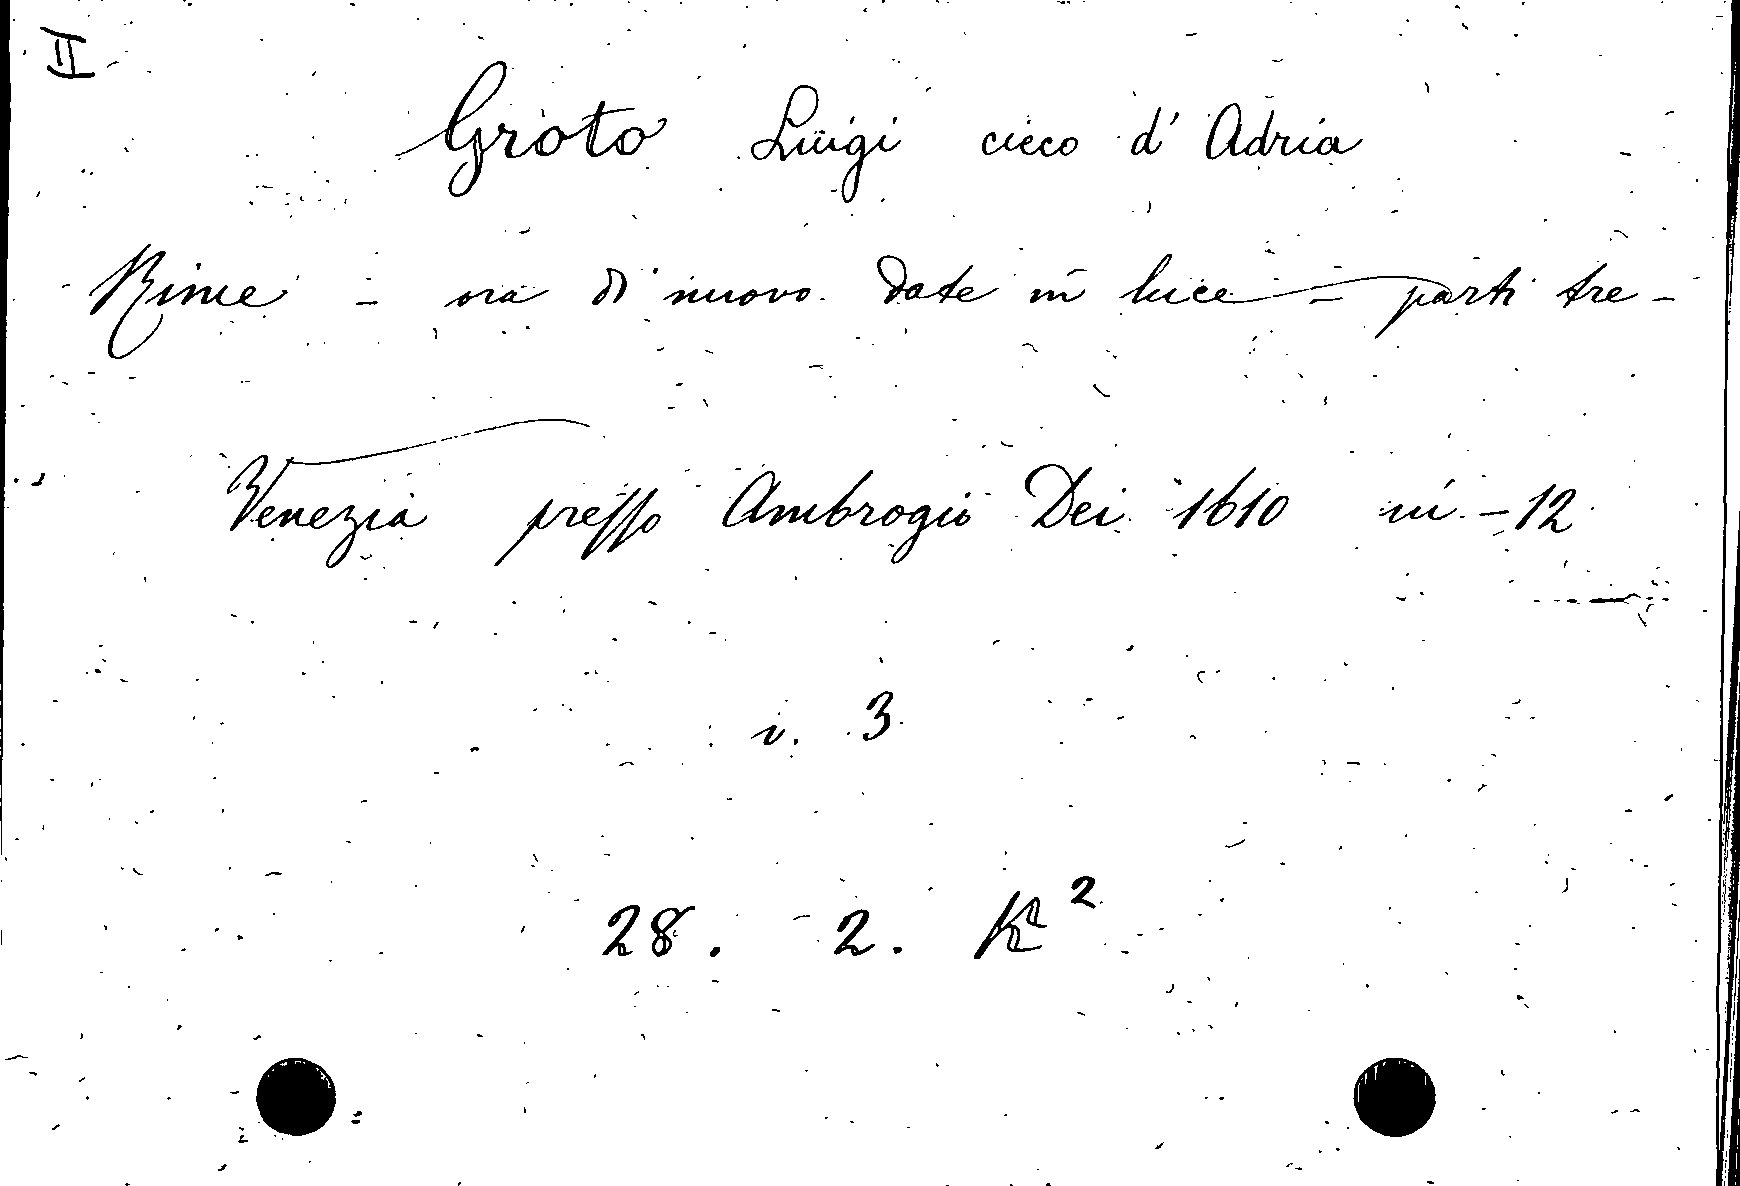 II
Groto Luigi cieco d'Adria
Rime - ora di nuovo date in luce - parti tre -
Venezia presso Ambrogio Dei 1610 in - 12
v. 3
28. 2. K²